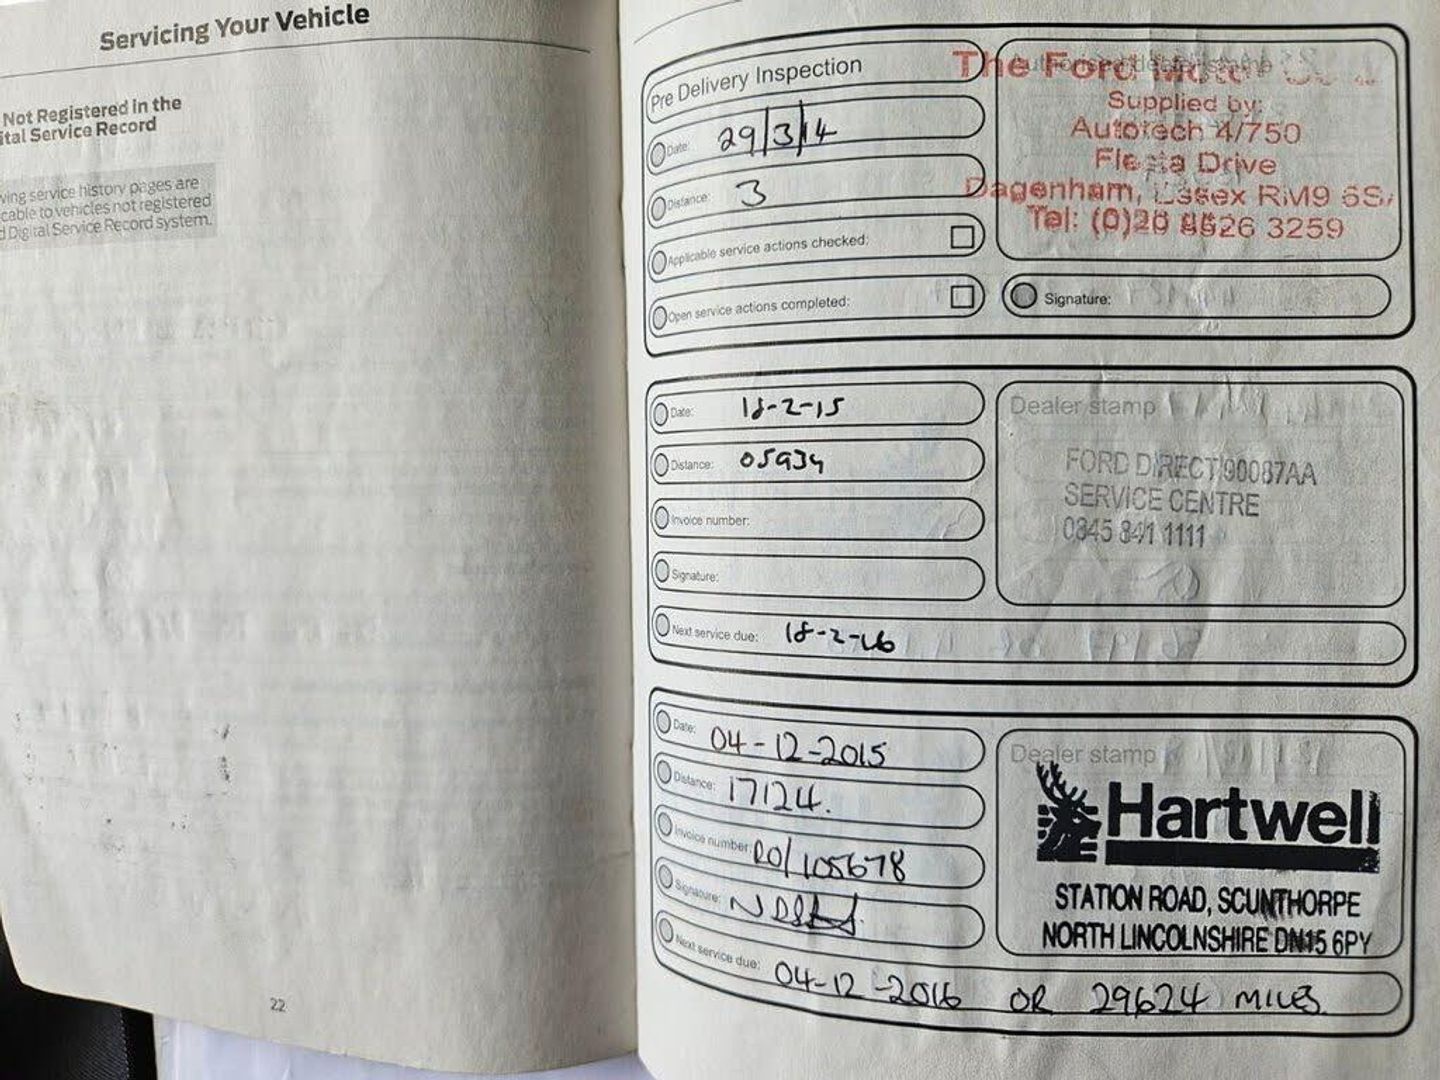 Servicing Your Vehicle
Not Registered in the
ital Service Record
wing service history pages are
cable to vehicles not registered
d Digital Service Record system.
22
Pre Delivery Inspection
Date: 29/3/14
Distance: 3
Applicable service actions checked:
Open service actions completed:
Authorised dealer stamp
The Ford
Supplied by:
Autotech 4/750
Fiesta Drive
Dagenham, Essex RM9 6S
Tel: (0)20 8526 3259
Signature:
Date: 18-2-15
Distance: 05934
Invoice number:
Signature:
Next service due: 18-2-16
Dealer stamp
FORD DIRECT/90087AA
SERVICE CENTRE
0845 841 1111
Date: 04-12-2015
Distance: 17124.
Invoice number: RO/105678
Signature:
Next service due: 04-12-2016 OR 29624 MILES
Dealer stamp
Hartwell
STATION ROAD, SCUNTHORPE
NORTH LINCOLNSHIRE DN15 6PY